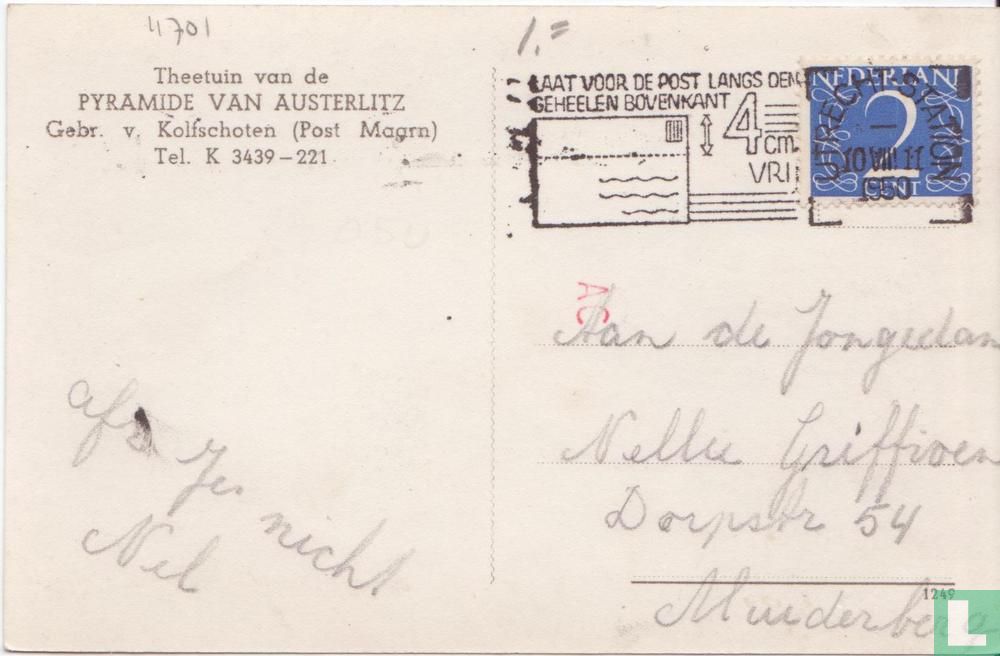 4701
1.=
Theetuin van de
PYRAMIDE VAN AUSTERLITZ
Gebr. v. Kolfschoten (Post Maarn)
Tel. K 3439-221
LAAT VOOR DE POST LANGS DEN
GEHEELEN BOVENKANT
4 cm
VRIJ
NEDERLAND
2
CENT
UTRECHT-STATION
10 VIII 11
1950
AC
Aan de Jongedam
Nellie
Dorpstr 54
Muiderberg
afz
Nel
1249
L